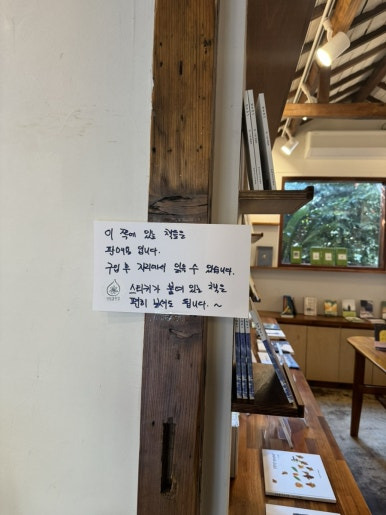 이 쪽에 있는 책들은
판매용 입니다.
구입 후 자리에서 읽을 수 있습니다.
스티커가 붙어 있는 책은
편히 보셔도 됩니다. ~